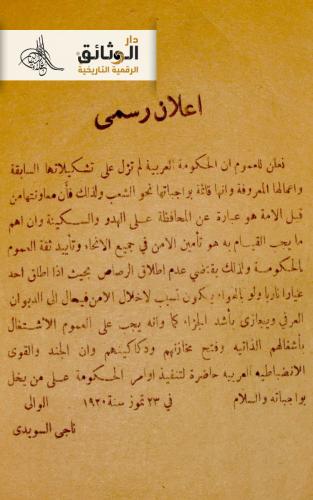 دار
الوثائق
الرقمية التاريخية
اعلان رسمى
نعلن للعموم ان الحكومة العربية لم تزل على تشكيلاتها السابقة
واعمالها المعروفة وانها قائمة بواجباتها نحو الشعب ولذلك فأن معاونتها من
قبل الامة هو عبارة عن المحافظة على الهدو والسكينة وان اهم
ما يجب القيام به هو تأمين الامن في جميع الانحاء وتأييد ثقة العموم
بالحكومة ولذلك يقتضي عدم اطلاق الرصاص بحيث اذا اطلق احد
عيارا ناريا ولو بالهواء يكون تسبب لاخلال الامن فيحال الى الديوان
العرفي ويجازى بأشد الجزاء كما وانه يجب على العموم الاشتغال
بأشغالهم الذاتيه وفتح مخازنهم ودكاكينهم وان الجند والقوى
الانضباطيه العربيه حاضرة لتنفيذ اوامر الحكومة على من يخل
بواجباته والسلام في ٢٣ تموز سنة ١٩٢٠ الوالى
ناجى السويدى